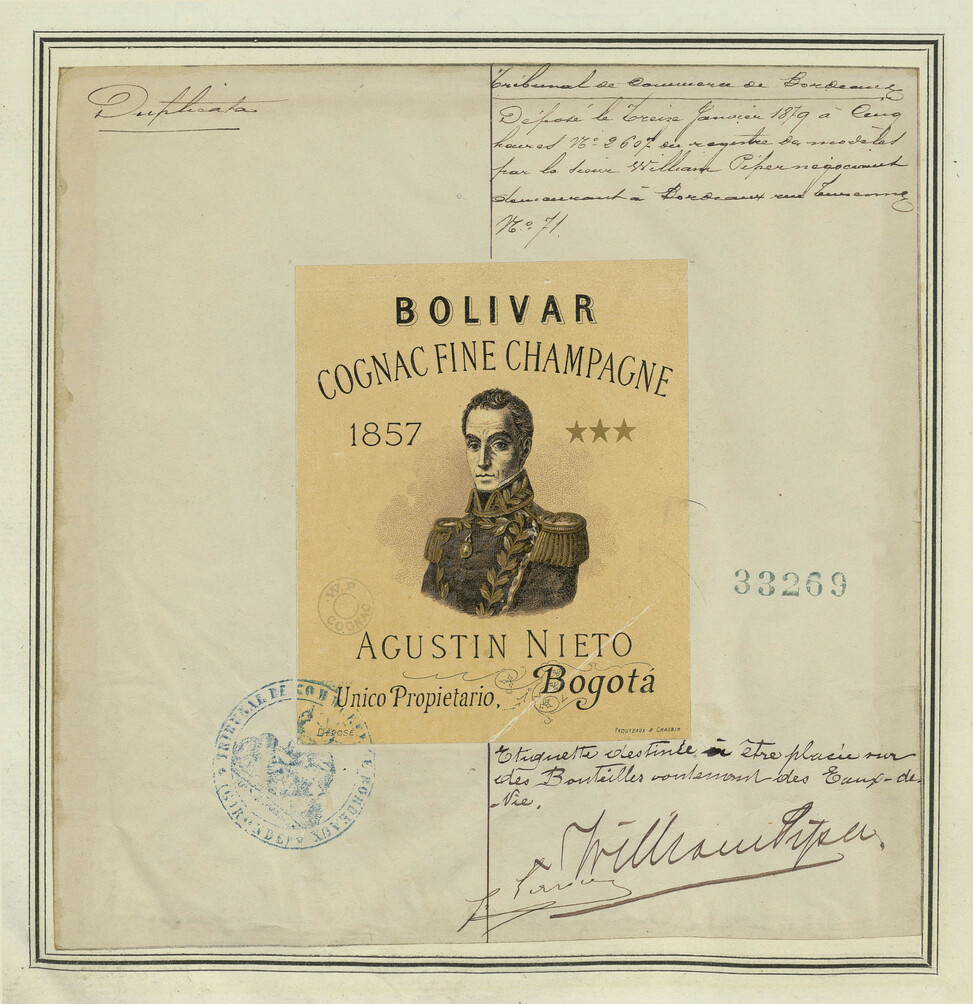 Duplicata
Tribunal de Commerce de Bordeaux
Déposé le treize Janvier 1879 à Cinq
heures No. 2607 du registre des modèles
par le sieur William Piper négociant
demeurant à Bordeaux rue Turenne
No. 71.
BOLIVAR
COGNAC FINE CHAMPAGNE
1857
W.P.
COGNAC
33269
AGUSTIN NIETO
Unico Propietario, Bogotá
DÉPOSÉ
TRIBUNAL DE COMMERCE DE BORDEAUX
(GIRONDE)
Etiquette destinée à être placée sur
des Bouteilles contenant des Eaux-de
-Vie.
William Piper